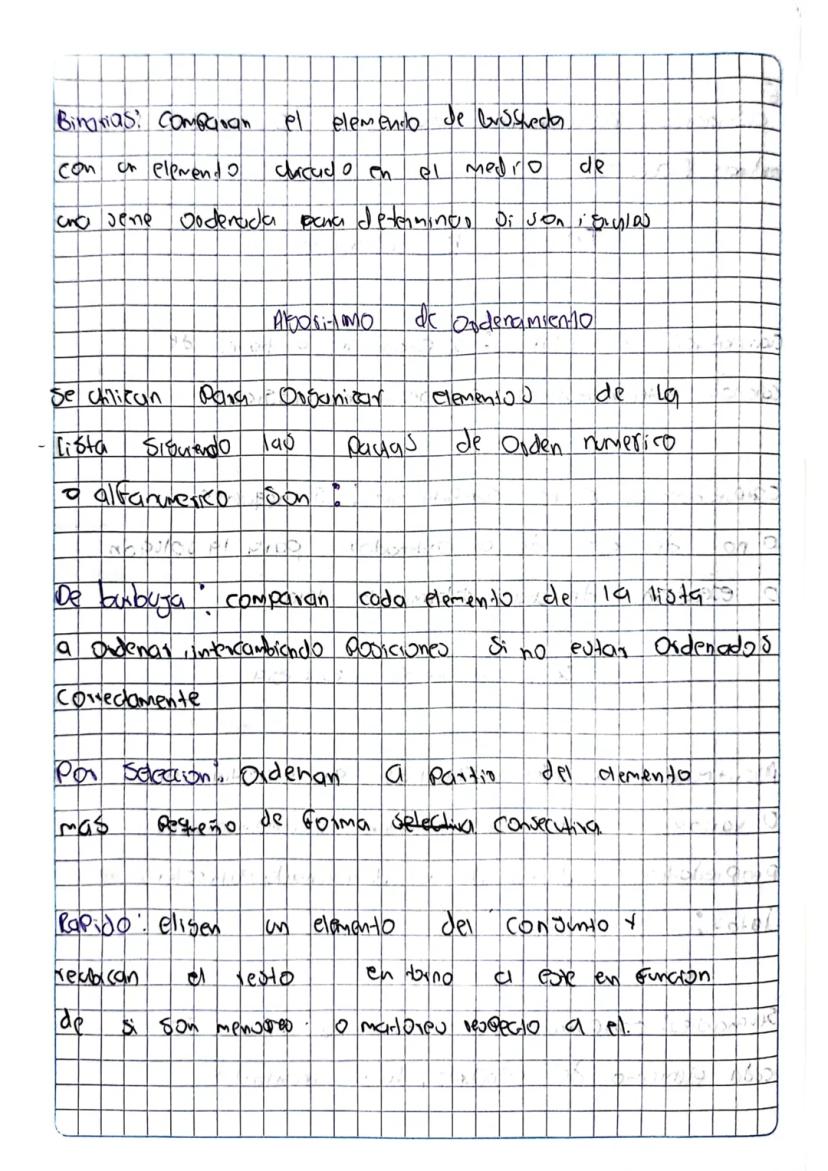 Binarias: Comparan el elemendo de búsqueda
con un elemendo ubicado en el medio de
una serie ordenada para determinar si son iguales
Algoritmo de ordenamiento
Se utilizan Para Organizar elementos de la
lista Siguiendo las pautas de Orden numerico
o alfanumerico son :
De burbuja : comparan cada elemento de la lista
a ordenar, intercambiando Posiciones Si no estan Ordenados
Correctamente
Por Selección: Ordenan a partir del elemento
mas Pequeño de forma selectiva consecutiva
Rapido: eligen un elemento del conjunto y
reubican el resto en torno a este en funcion
de si son menores o mayores respecto a el.